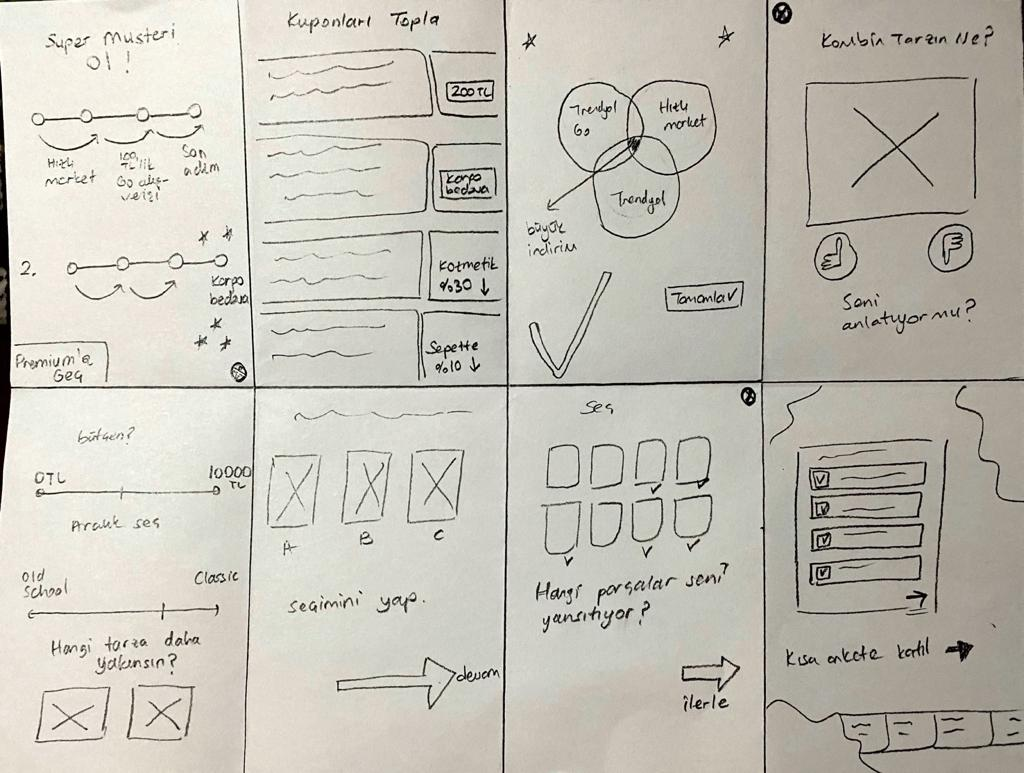 Süper Müşteri
Ol!
Hızlı
market
100
TL'lik
Go alış-
verişi
Son
adım
2.
Karpo
bedava
Premium'a
Geç
Kuponları Topla
200 TL
Karpo
bedava
Kozmetik
%30 ↓
Sepette
%10 ↓
Trendyol
Go
Hızlı
market
Trendyol
büyük
indirim
Tamamla
Kombin Tarzın Ne?
Seni
anlatıyor mu?
bütçen?
0TL
10000
TL
Aralık seç
Old
School
Classic
Hangi tarza daha
yakınsın?
A
B
C
seçimini yap.
devam
Seç
2
Hangi parçalar seni
yansıtıyor?
ilerle
Kısa ankete katıl